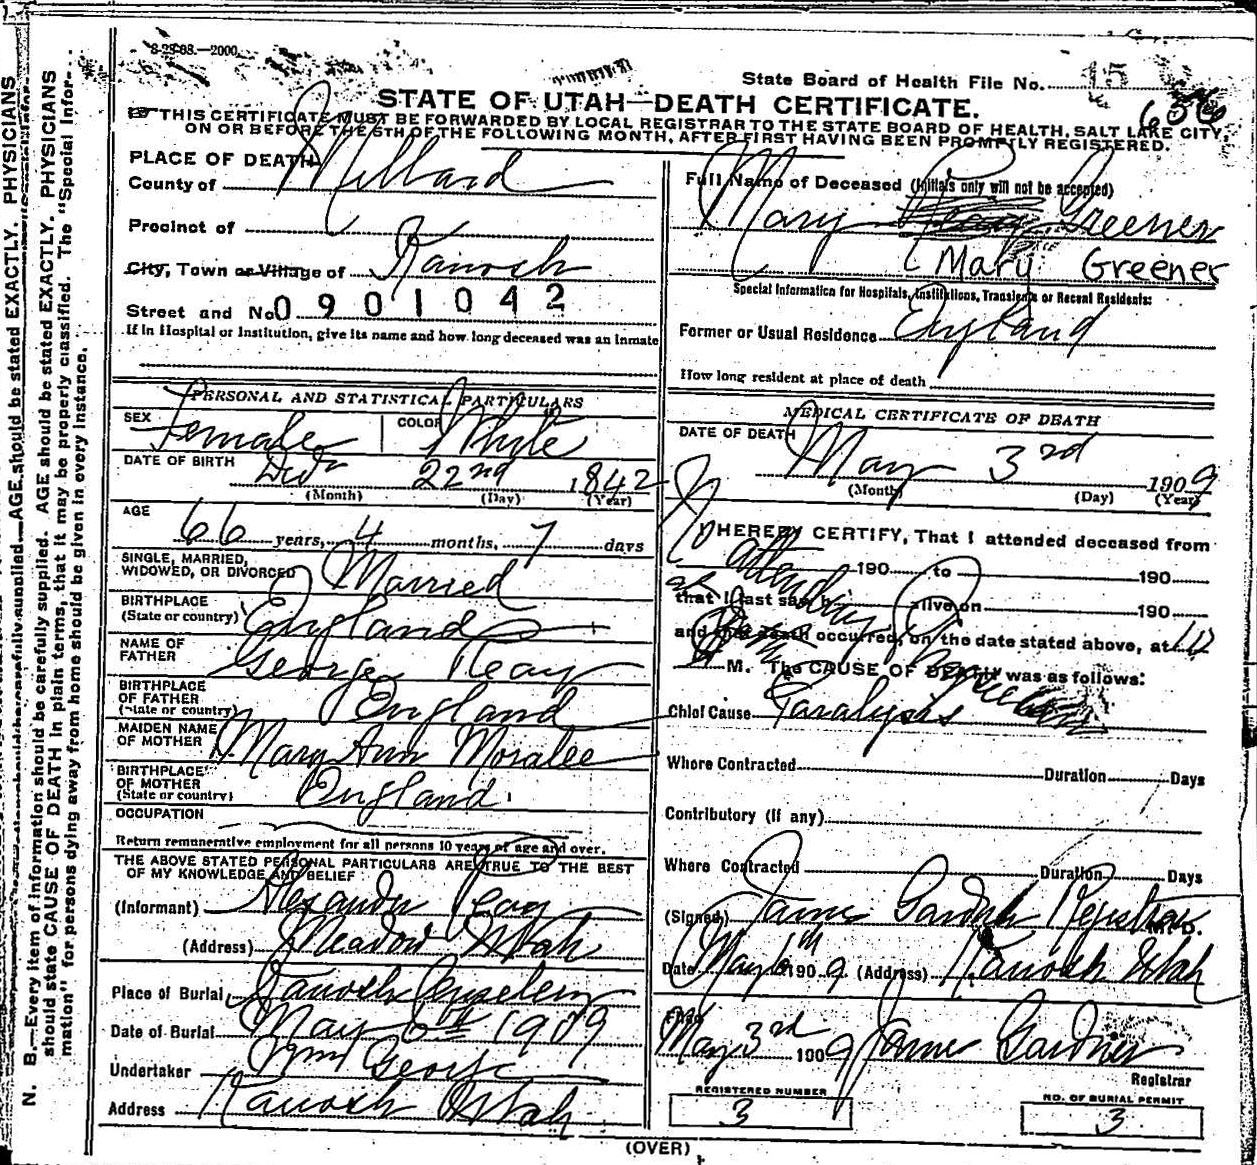 8-28-08.—2000
State Board of Health File No. 15
656
STATE OF UTAH—DEATH CERTIFICATE.
THIS CERTIFICATE MUST BE FORWARDED BY LOCAL REGISTRAR TO THE STATE BOARD OF HEALTH, SALT LAKE CITY,
ON OR BEFORE THE 5TH OF THE FOLLOWING MONTH, AFTER FIRST HAVING BEEN PROMPTLY REGISTERED.
PLACE OF DEATH
County of Millard
Precinct of
City, Town or Village of Kanosh
Street and No. 0901042
If in Hospital or Institution, give its name and how long deceased was an Inmate
PERSONAL AND STATISTICAL PARTICULARS
SEX Female COLOR White
DATE OF BIRTH 22nd 1842
(Month) (Day) (Year)
AGE 66 years, 4 months, 7 days
SINGLE, MARRIED,
WIDOWED, OR DIVORCED Married
BIRTHPLACE
(State or country) England
NAME OF
FATHER George Reay
BIRTHPLACE
OF FATHER
(State or country) England
MAIDEN NAME
OF MOTHER Mary Ann Moralee
BIRTHPLACE
OF MOTHER
(State or country) England
OCCUPATION
Return remunerative employment for all persons 10 years of age and over.
THE ABOVE STATED PERSONAL PARTICULARS ARE TRUE TO THE BEST
OF MY KNOWLEDGE AND BELIEF
(Informant) Alexander Reay
(Address) Meadow Utah
Place of Burial Kanosh
Date of Burial May 6th 1909
Undertaker Wm George
Address Kanosh Utah
Full Name of Deceased (Initials only will not be accepted)
Mary Reay Greener
(Mary Greener
Special Information for Hospitals, Institutions, Transients or Recent Residents:
Former or Usual Residence England
How long resident at place of death
MEDICAL CERTIFICATE OF DEATH
DATE OF DEATH May 3rd 1909
(Month) (Day) (Year)
I HEREBY CERTIFY, That I attended deceased from
190 to 190
that I last saw alive on 190
and that death occurred, on the date stated above, at 10
M. The CAUSE OF DEATH was as follows:
No attending
Chief Cause Paralysis
Where Contracted Duration Days
Contributory (If any)
Where Contracted Duration Days
(Signed) James Gardner Registrar M. D.
Date May 6th 1909 (Address) Kanosh Utah
Filed
May 3rd 1909 James Gardner
Registrar
REGISTERED NUMBER
3
NO. OF BURIAL PERMIT
3
(OVER)
N. B.—Every item of information should be carefully supplied. AGE should be stated EXACTLY. PHYSICIANS
should state CAUSE OF DEATH in plain terms, that it may be properly classified. The "Special Infor-
mation" for persons dying away from home should be given in every instance.